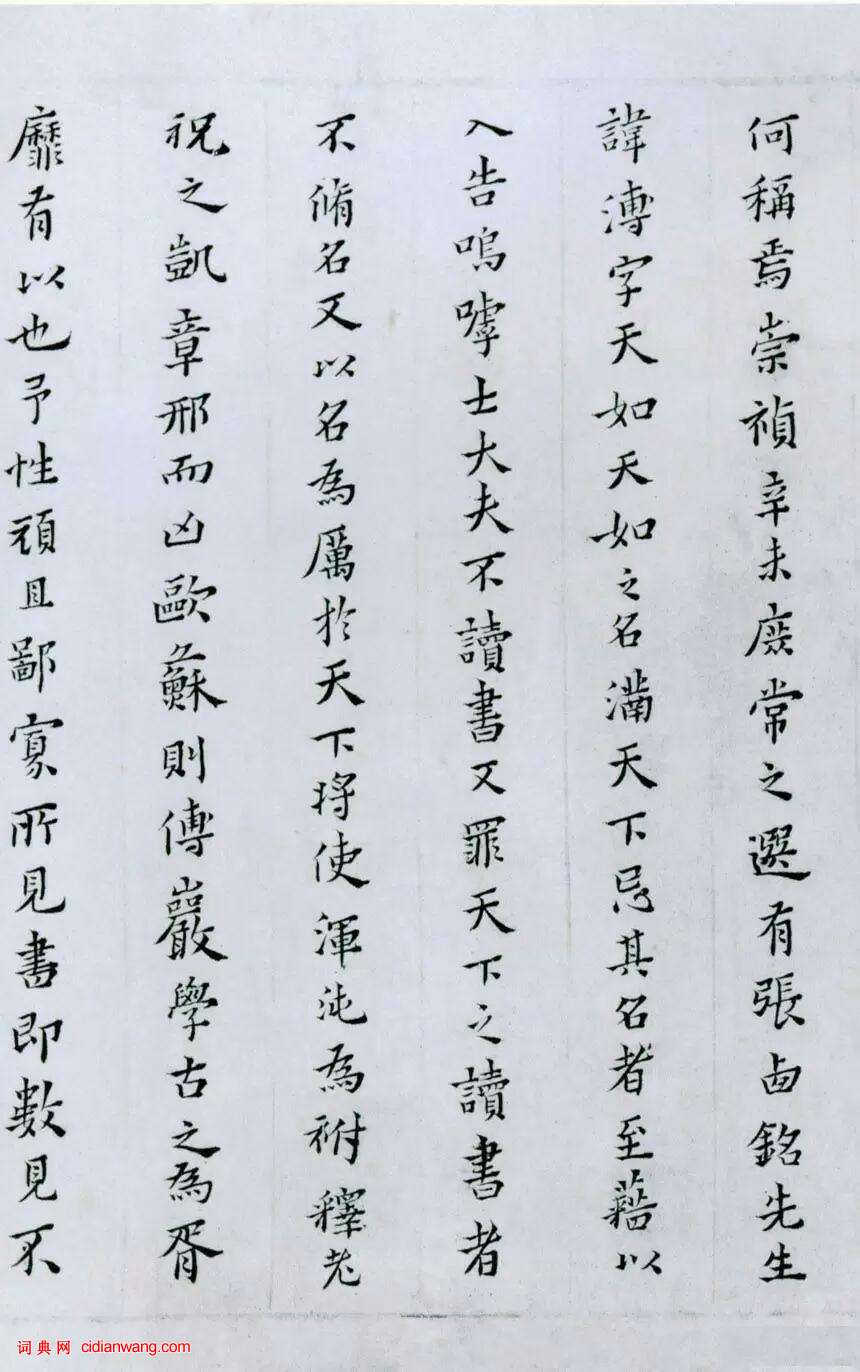 何稱焉崇禎辛未庶常之選有張西銘先生
諱溥字天如天如之名滿天下忌其名者至藉以
入告嗚嘑士大夫不讀書又罪天下之讀書者
不脩名又以名為厲於天下將使渾沌為祔釋老
祝之凱章邢而凶歐蘇則傅巖學古之為胥
靡有以也予性頑且鄙寡所見書即數見不
词典网 cidianwang.com